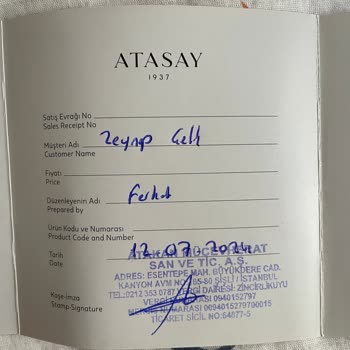 ATASAY
1937
Satış Evrağı No
Sales Receipt No
Müşteri Adı Zeynep
Customer Name
Fiyatı
Price
Düzenleyenin Adı Ferhat
Prepared by
Ürün Kodu ve Numarası
Product Code and Number
Tarih 12-07-2024
Date
ATAKAN MÜCEVHERAT
SAN VE TİC. A.Ş.
ADRES: ESENTEPE MAH. BÜYÜKDERE CAD.
KANYON AVM NO: 185-80 ŞİŞLİ / İSTANBUL
TEL:0212 353 0787 VERGİ DAİRESİ: ZİNCİRLİKUYU
VERGİ NUMARASI 0940152797
Kaşe.İmza
Stamp Signature
NUMARASI: 0094015279700015
TİCARET SİCİL NO: